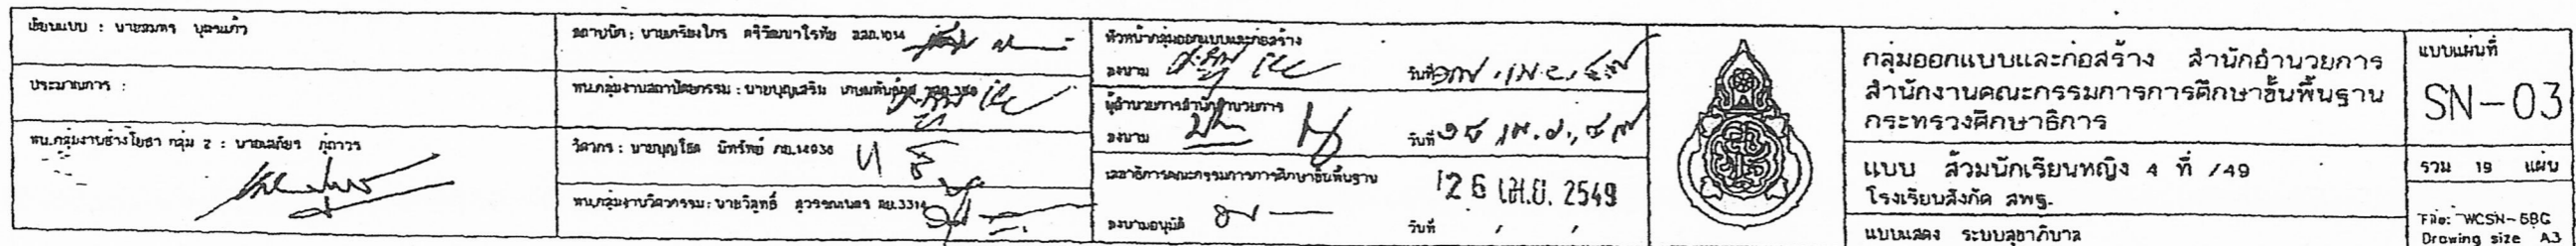 เขียนแบบ : นายสมพร บุตรแก้ว
ประมาณการ :
หน.กลุ่มงานช่างโยธา กลุ่ม 2 :
สถาปนิก : นายเกรียงไกร ศรีวัฒนาโรทัย สสถ.1014
หน.กลุ่มงานสถาปัตยกรรม : นายบุญเสริม
วิศวกร : นายบุญโชต มีทรัพย์ ภย.14936
หน.กลุ่มงานวิศวกรรม : นายวิสุทธิ์ สุวรรณเนตร สย.3314
หัวหน้ากลุ่มออกแบบและก่อสร้าง
ลงนาม วันที่
ผู้อำนวยการสำนักอำนวยการ
ลงนาม วันที่ ๒๕ เม.ย. ๔๙
เลขาธิการคณะกรรมการการศึกษาขั้นพื้นฐาน
26 เม.ย. 2549
ลงนามอนุมัติ วันที่
กลุ่มออกแบบและก่อสร้าง สำนักอำนวยการ
สำนักงานคณะกรรมการการศึกษาขั้นพื้นฐาน
กระทรวงศึกษาธิการ
แบบ ส้วมนักเรียนหญิง 4 ที่ /49
โรงเรียนสังกัด สพฐ.
แบบแสดง ระบบสุขาภิบาล
แบบแผ่นที่
SN-03
รวม 19 แผ่น
File: WCSN-68C
Drawing size A3